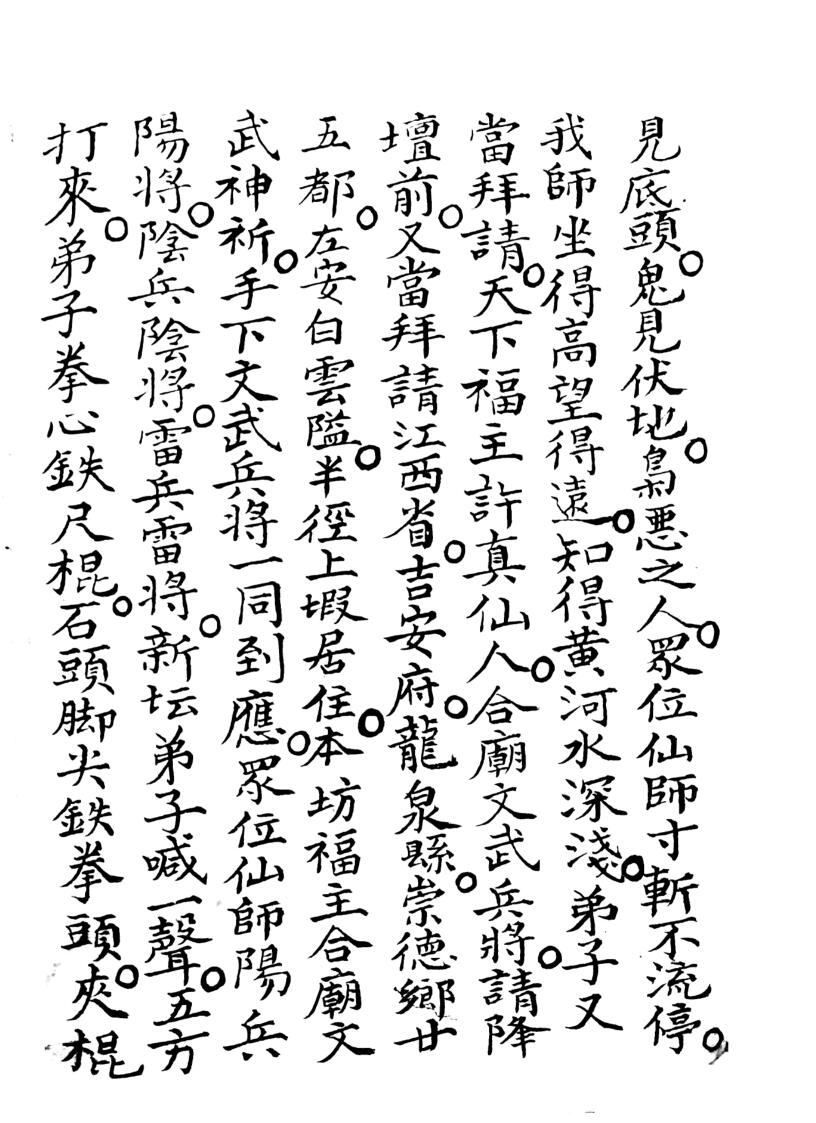 見底頭。鬼見伏地。梟惡之人。眾位仙師寸斬不流停。
我師坐得高望得遠。知得黃河水深淺。弟子又
當拜請。天下福主許真仙人。合廟文武兵將。請降
壇前。又當拜請江西省。吉安府。龍泉縣。崇德鄉廿
五都。左安白雲隘。半徑上塅居住。本坊福主合廟文
武神祈。手下文武兵將一同到應。眾位仙師陽兵
陽將。陰兵陰將。雷兵雷將。新坛弟子喊一聲。五方
打來。弟子拳心鉄尺棍。石頭脚尖鉄拳頭。夾棍